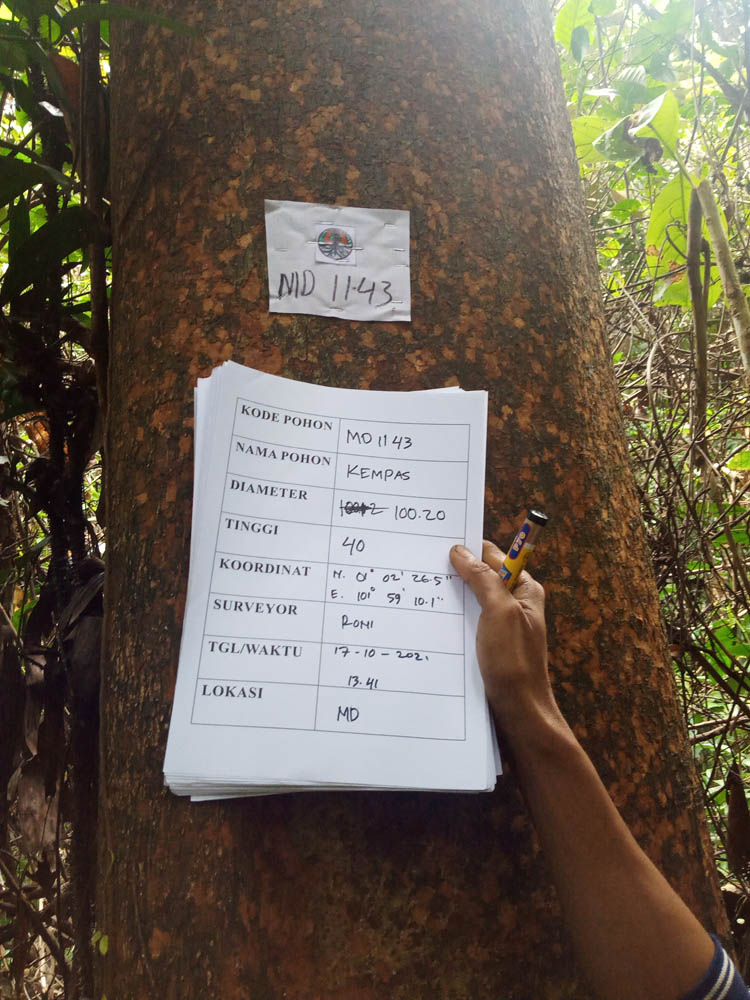 MD 11.43
KODE POHON MD 11 43
NAMA POHON KEMPAS
DIAMETER 100.20
TINGGI 40
KOORDINAT N. 01° 02' 26.5"
E. 101° 59' 10.1"
SURVEYOR RONI
TGL/WAKTU 17-10-2021
13.41
LOKASI MD